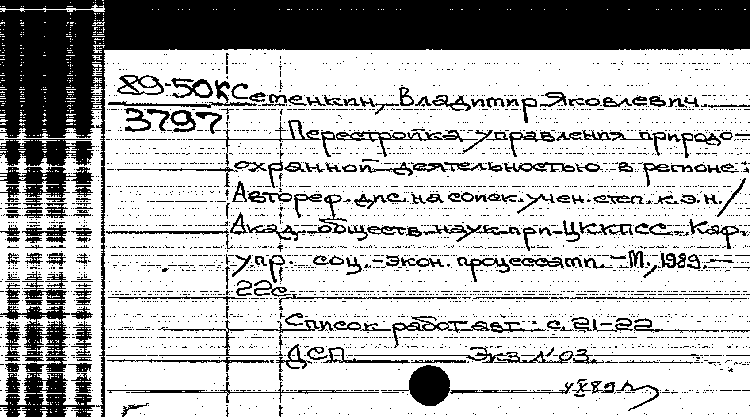 89-50К Семенкин, Владимир Яковлевич.
3797
Перестройка управления природо-
охранной деятельностью в регионе:
Автореф. дис. на соиск. учен. степ. к.э.н. /
Акад. обществ. наук при ЦК КПСС. Каф.
упр. соц.-экон. процессами. - М., 1989. -
22с.
Список работ авт.: с. 21-22.
ДСП. Экз. N 03.